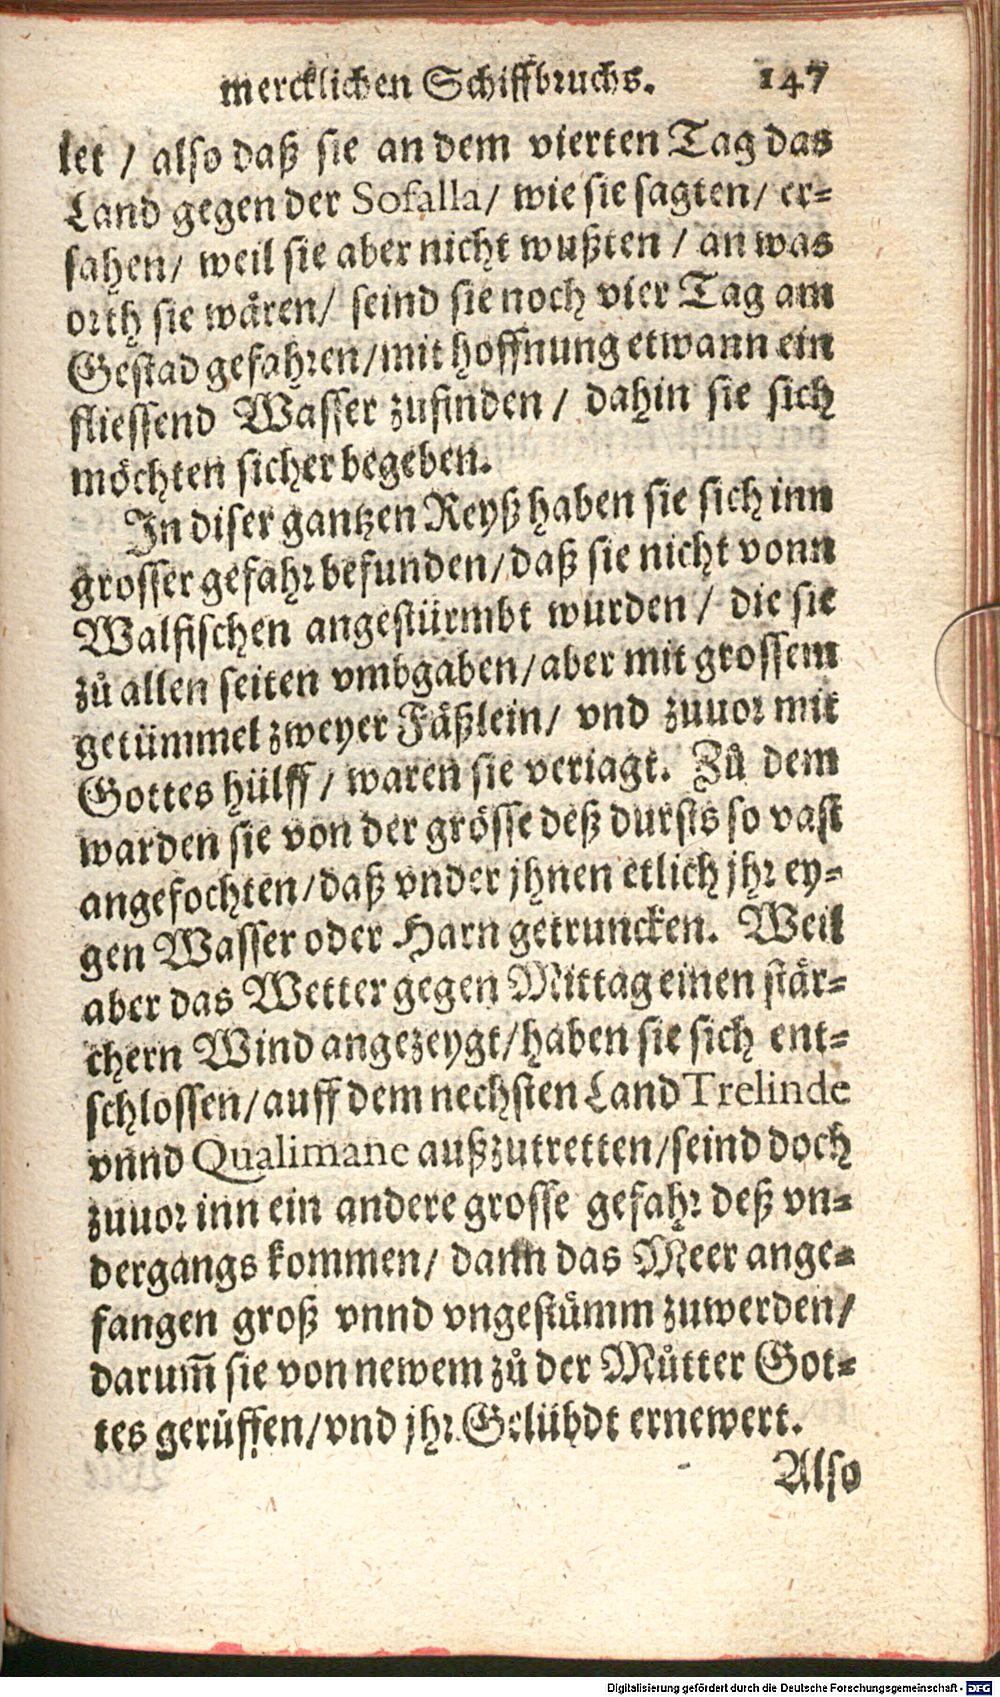 mercklichen Schiffbruchs. 147
let / also daß sie an dem vierten Tag das
Land gegen der Sofalla/ wie sie sagten/ er-
sahen/ weil sie aber nicht wußten / an was
orth sie wären/ seind sie noch vier Tag am
Gestad gefahren/mit hoffnung etwann ein
fliessend Wasser zufinden / dahin sie sich
möchten sicher begeben.
In diser gantzen Reyß haben sie sich inn
grosser gefahr befunden/daß sie nicht vonn
Walfischen angestürmbt wurden / die sie
zů allen seiten vmbgaben/aber mit grossem
getümmel zweyer Fäßlein/ vnd zuuor mit
Gottes hülff / waren sie veriagt. Zů dem
warden sie von der grösse deß dursts so vast
angefochten/daß vnder jhnen etlich jhr ey-
gen Wasser oder Harn getruncken. Weil
aber das Wetter gegen Mittag einen stär-
chern Wind angezeygt/haben sie sich ent-
schlossen/auff dem nechsten Land Trelinde
vnnd Qualimane außzutretten/seind doch
zuuor inn ein andere grosse gefahr deß vn-
dergangs kommen/ dann das Meer ange-
fangen groß vnnd vngestümm zuwerden/
darum̃ sie von newem zů der Můtter Got-
tes gerůffen/vnd jhr Gelühdt ernewert.
Also
Digitalisierung gefördert durch die Deutsche Forschungsgemeinschaft - DFG